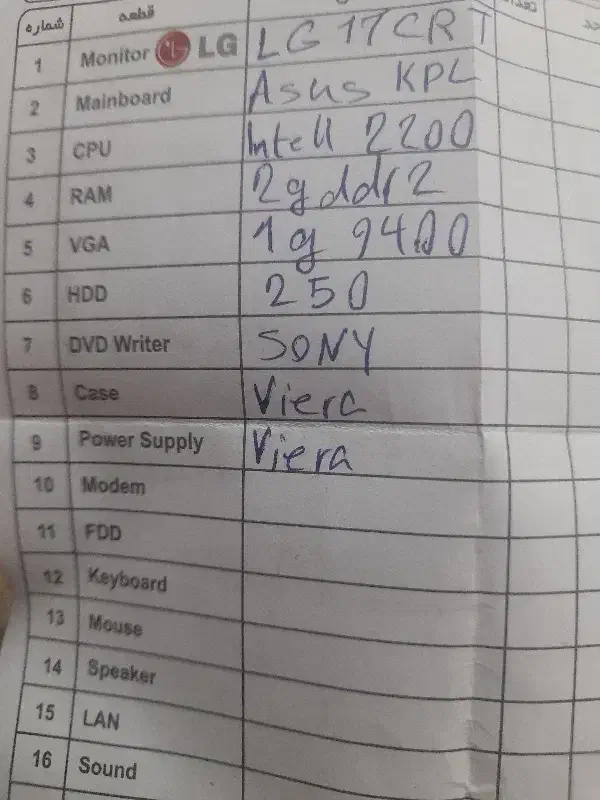 شماره قطعه تعداد
1 Monitor LG LG 17 CRT
2 Mainboard Asus KPL
3 CPU Intell 2200
4 RAM 2g ddr2
5 VGA 1g 9400
6 HDD 250
7 DVD Writer SONY
8 Case Viera
9 Power Supply Viera
10 Modem
11 FDD
12 Keyboard
13 Mouse
14 Speaker
15 LAN
16 Sound